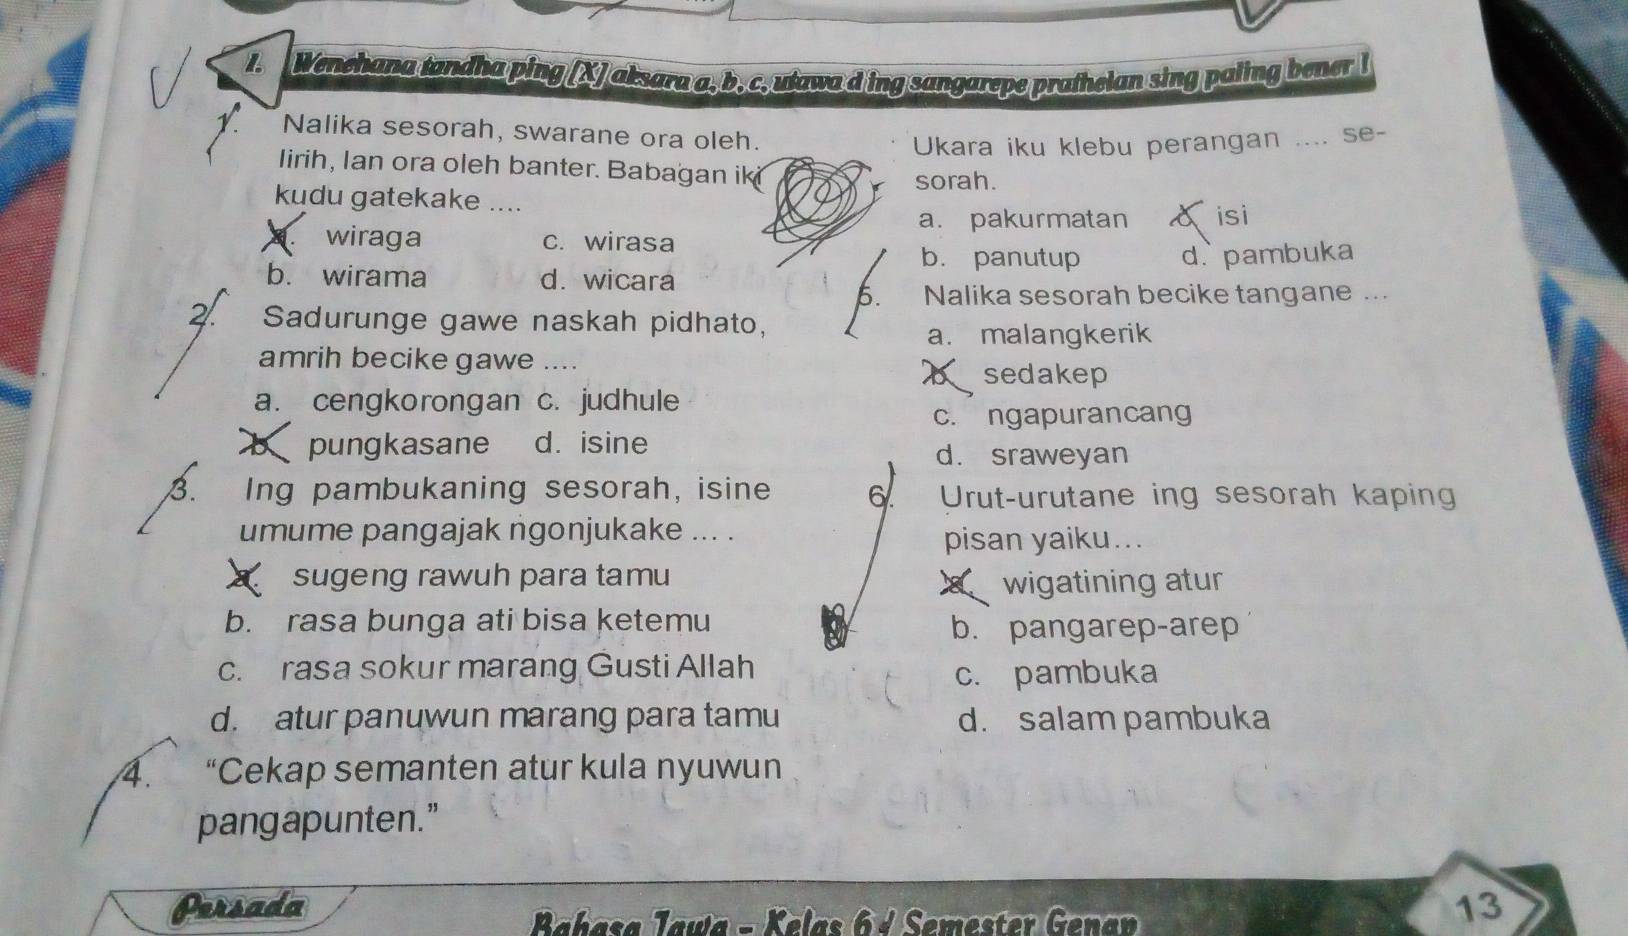 1. Wenehana tandha ping [X] aksara a, b, c, utawa d ing sangarepe prathelan sing paling bener !
1. Nalika sesorah, swarane ora oleh.
lirih, lan ora oleh banter. Babagan iki
kudu gatekake ....
a. wiraga c. wirasa
b. wirama d. wicara
2. Sadurunge gawe naskah pidhato,
amrih becike gawe ....
a. cengkorongan c. judhule
b. pungkasane d. isine
3. Ing pambukaning sesorah, isine
umume pangajak ngonjukake ... .
a. sugeng rawuh para tamu
b. rasa bunga ati bisa ketemu
c. rasa sokur marang Gusti Allah
d. atur panuwun marang para tamu
4. “Cekap semanten atur kula nyuwun
pangapunten.”
Ukara iku klebu perangan .... se-
sorah.
a. pakurmatan c. isi
b. panutup d. pambuka
5. Nalika sesorah becike tangane ...
a. malangkerik
b. sedakep
c. ngapurancang
d. sraweyan
6. Urut-urutane ing sesorah kaping
pisan yaiku...
a. wigatining atur
b. pangarep-arep
c. pambuka
d. salam pambuka
Persada
Bahasa Jawa - Kelas 6 / Semester Genap
13